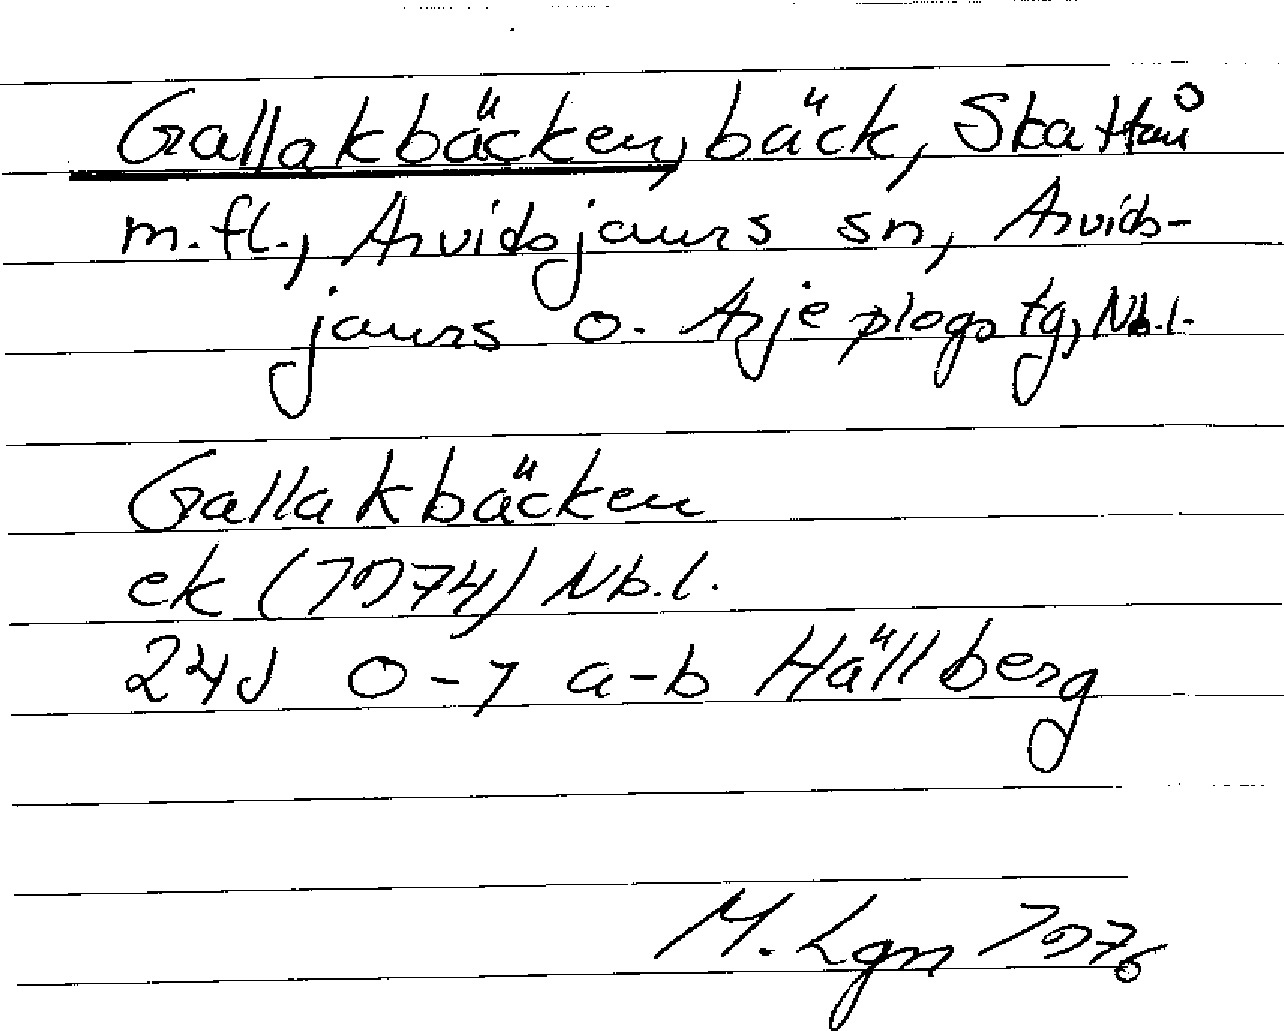 Gallakbäcken, bäck, Skattån
m.fl., Arvidsjaurs sn, Arvids-
jaurs o. Arjeplogs tg, Nb.l.
Gallakbäcken
ek (1974) Nb.l.
24J 0-1 a-b Hällberg
M. Lgn 1976